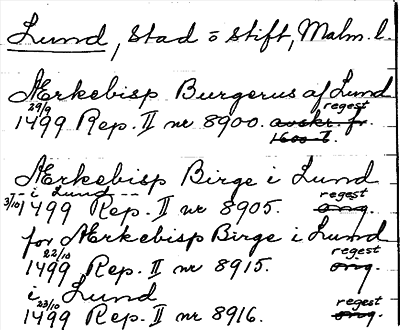 Lund, Stad o Stift, Malm. l.
Ærkebisp Burgerus af Lund
29/9 regest
1499 Rep. II nr 8900. avskr. fr.
1600-t.
Ærkebisp Birge i Lund
- i Lund - regest
3/10 1499 Rep. II nr 8905. orig.
for Ærkebisp Birge i Lund
22/10 regest
1499 Rep. II nr 8915. orig.
i Lund
23/10 regest
1499 Rep. II nr 8916. orig.